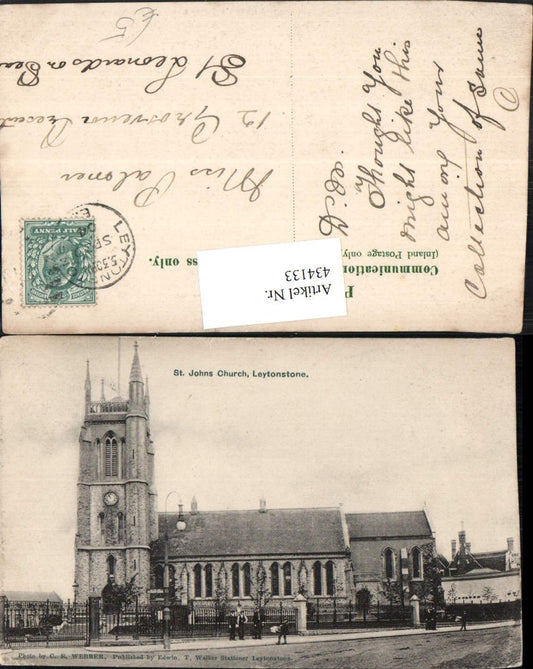 £5
St Leonards on Sea
12 Grosvenor Crescent
Miss Palmer
Thought you
might like this
among your
Collection of same
Communication
(Inland Postage only
ess only.
HALFPENNY
LEYTON
5.30
SP
Artikel Nr.
434133
St. Johns Church, Leytonstone.
Photo by C. E. WEBBER, Published by Edwin. T. Walker Stationer Leytonstone.